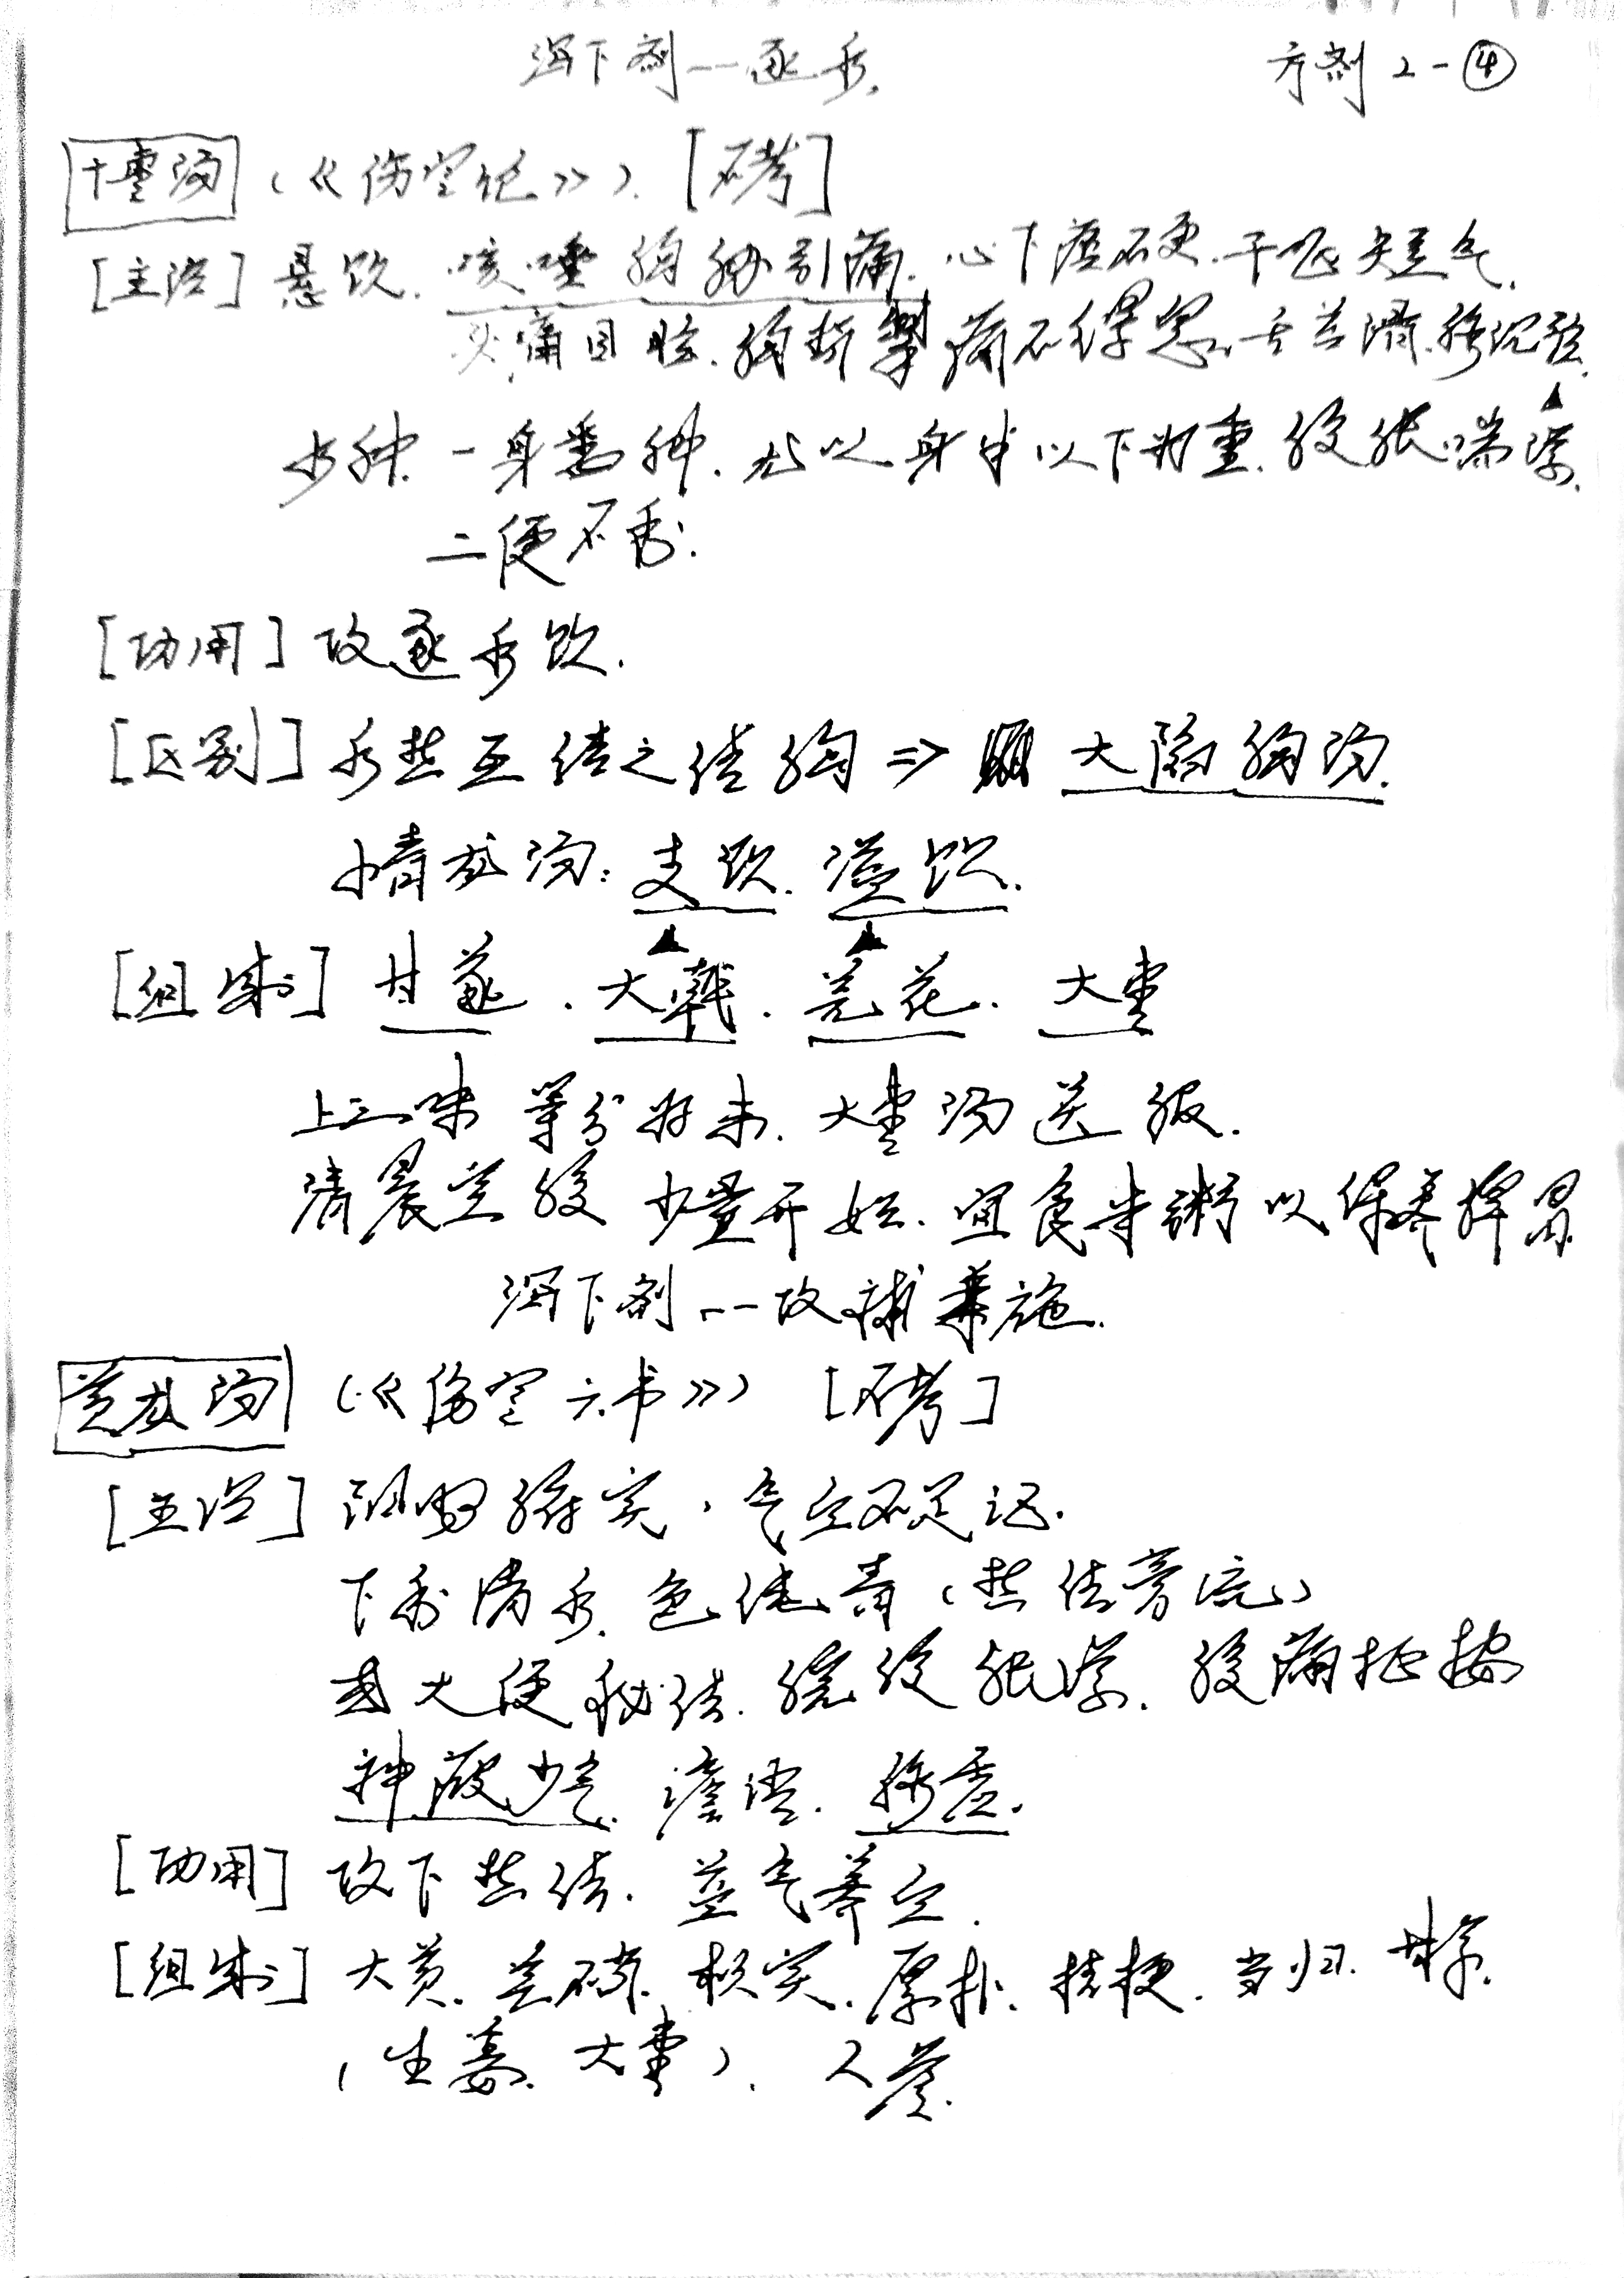 泻下剂——逐水.
方剂2-④
十枣汤(《伤寒论》).[不考]
[主治]悬饮.咳唾胸胁引痛.心下痞硬.干呕短气.
头痛目眩.胸背掣痛不得息.舌苔滑.脉沉弦.
水肿.一身悉肿.尤以身半以下为重.腹胀喘满.
二便不利.
[功用]攻逐水饮.
[区别]水热互结之结胸⇒大陷胸汤.
小青龙汤:支饮.溢饮.
[组成]甘遂.大戟.芫花.大枣
上三味等分为末.大枣汤送服.
清晨空腹少量开始.宜食米粥以保养脾胃
泻下剂——攻补兼施.
黄龙汤(《伤寒六书》)[不考]
[主治]阳明腑实,气血不足证.
下利清水.色纯青(热结旁流)
或大便秘结.脘腹胀满.腹痛拒按
神疲少气.谵语.脉虚.
[功用]攻下热结.益气养血.
[组成]大黄.芒硝.枳实.厚朴.桔梗.当归.甘草.
(生姜.大枣).人参.